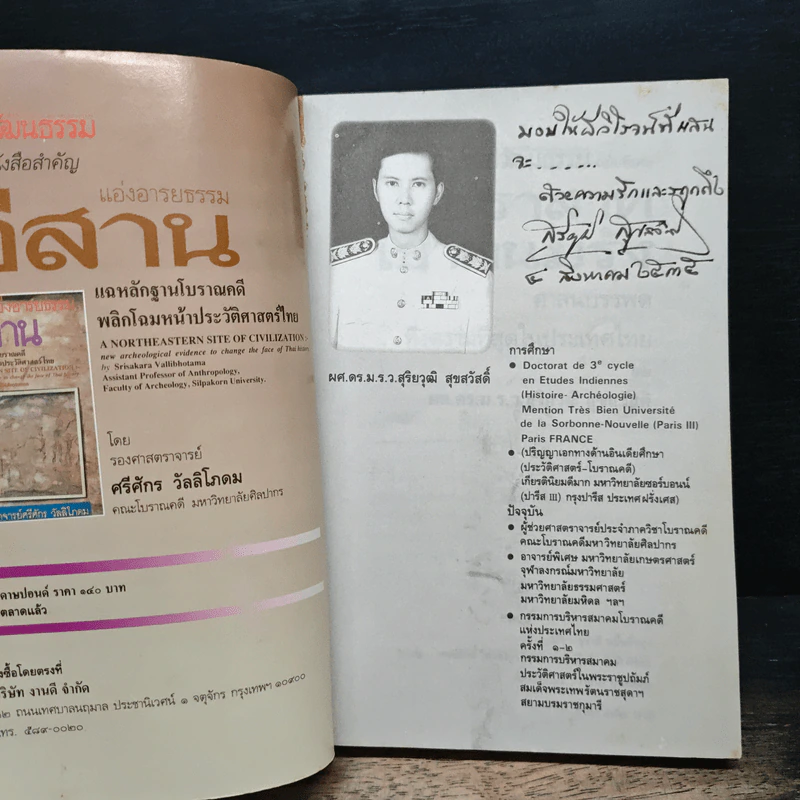 ัฒนธรรม
ังสือสำคัญ
แอ่งอารยธรรม
อีสาน
แฉหลักฐานโบราณคดี
พลิกโฉมหน้าประวัติศาสตร์ไทย
A NORTHEASTERN SITE OF CIVILIZATION
new archeological evidence to change the face of Thai history
by Srisakara Vallibhotama
Assistant Professor of Anthropology,
Faculty of Archeology, Silpakorn University.
โดย
รองศาสตราจารย์
ศรีศักร วัลลิโภดม
คณะโบราณคดี มหาวิทยาลัยศิลปากร
าน
าจารย์ศรีศักร วัลลิโภดม
ดาษปอนด์ ราคา ๑๔๐ บาท
ตลาดแล้ว
งซื้อโดยตรงที่
ริษัท งานดี จำกัด
๒ ถนนเทศบาลนฤมาล ประชานิเวศน์ ๑ จตุจักร กรุงเทพฯ ๑๐๙๐๐
ทร. ๕๘๙-๐๐๒๐
มอบให้
จะ......
ด้วยความรักและระลึกถึง
๔ สิงหาคม ๒๕๓๕
ผศ.ดร.ม.ร.ว.สุริยวุฒิ สุขสวัสดิ์
การศึกษา
● Doctorat de 3e cycle
en Etudes Indiennes
(Histoire- Archéologie)
Mention Très Bien Université
de la Sorbonne-Nouvelle (Paris III)
Paris FRANCE
● (ปริญญาเอกทางด้านอินเดียศึกษา
(ประวัติศาสตร์-โบราณคดี)
เกียรตินิยมดีมาก มหาวิทยาลัยซอร์บอนน์
(ปารีส III) กรุงปารีส ประเทศฝรั่งเศส)
ปัจจุบัน
● ผู้ช่วยศาสตราจารย์ประจำภาควิชาโบราณคดี
คณะโบราณคดีมหาวิทยาลัยศิลปากร
● อาจารย์พิเศษ มหาวิทยาลัยเกษตรศาสตร์
จุฬาลงกรณ์มหาวิทยาลัย
มหาวิทยาลัยธรรมศาสตร์
มหาวิทยาลัยมหิดล ฯลฯ
● กรรมการบริหารสมาคมโบราณคดี
แห่งประเทศไทย
ครั้งที่ ๑-๒
กรรมการบริหารสมาคม
ประวัติศาสตร์ในพระราชูปถัมภ์
สมเด็จพระเทพรัตนราชสุดาฯ
สยามบรมราชกุมารี